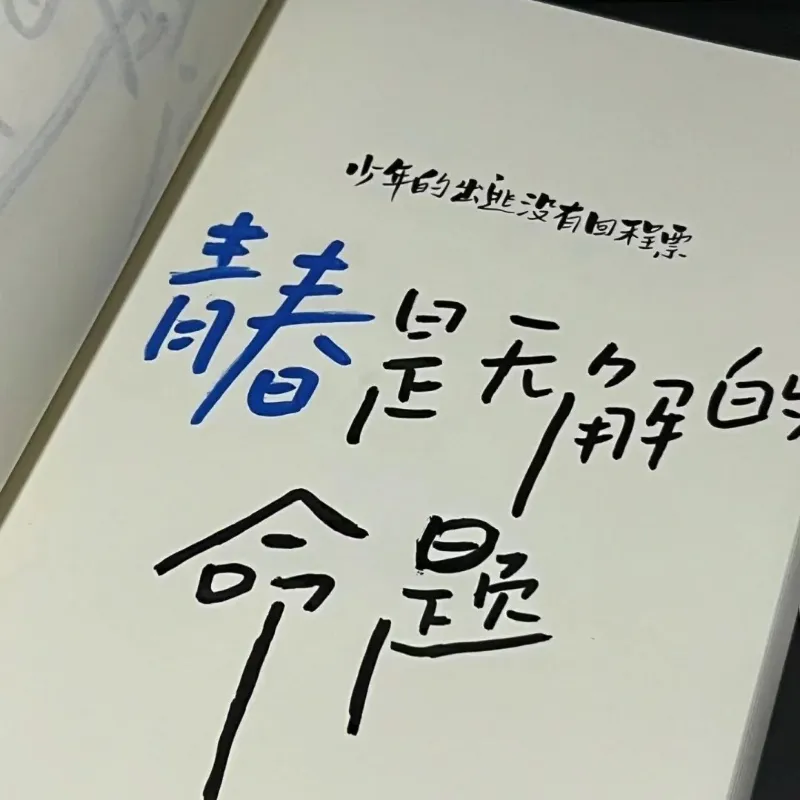 少年的出逃没有回程票
青春是无解的
命题